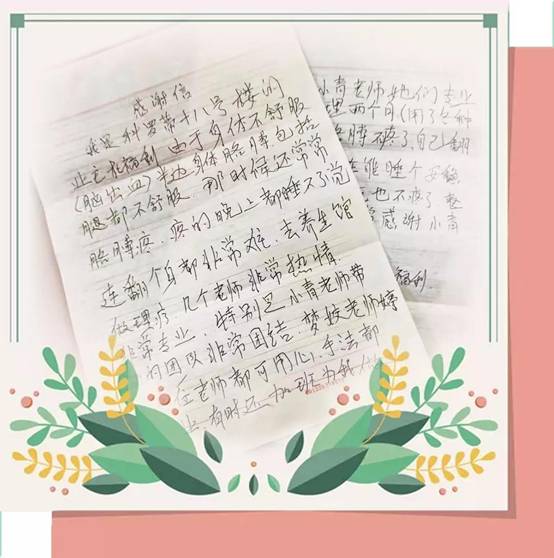 感谢信
我是科罗第十八号楼的
业主 福利 由于身体不舒服
(脑出血)半边身体胳膊包括
腿都不舒服 那时候还常常
胳膊疼、疼的晚上都睡不了觉
连翻个身都非常难.去养生馆
做理疗 几个老师非常热情.
非常专业.特别是小青老师带
的团队非常团结.梦 老师婷
老师都可用心.手法都
有时还加班为我
小青老师她们专业
理两个月(用了各种
膊不疼了.自己翻
能睡个安稳
也不疼了
感谢小青
福利